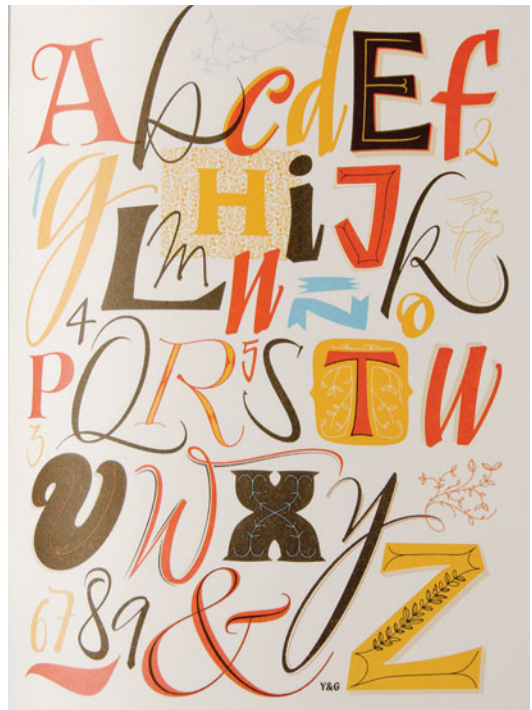 A b c d E f 2
1 g H i J k
L m n Ñ o
4
P Q R 5 S T u
3
v W X y
6 7 8 9 & Z
Y&G